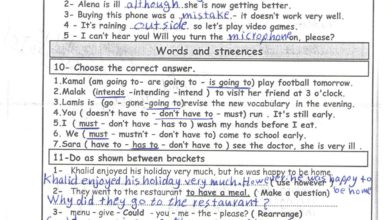 2- Alena is ill although she is now getting better.
3- Buying this phone was a mistake - it doesn't work very well.
4 - It's raining outside so let's play video games.
5 - I can't hear you! Will you turn the microphone on, please?
Words and stneences
10- Choose the correct answer.
1.Kamal (am going to- are going to - is going to) play football tomorrow.
2.Malak (intends -intending -intend ) to visit her friend at 3 o'clock.
3.Lamis is (go - gone -going to)revise the new vocabulary in the evening.
4.You ( doesn't have to - don't have to - must) run . It's still early.
5.I ( must - don't have to - has to ) wash my hands before I eat.
6. We ( must - mustn't - don't have to) come to school early.
7.Sara ( have to - has to - don't have to ) see the doctor, she is very ill .
11-Do as shown between brackets
1- Khalid enjoyed his holiday very much, but he was happy to be home.
Khalid enjoyed his holiday very much. However, he was happy to be home
( use however )
2- They went to the restaurant to have a meal. ( Make a question)
Why did they go to the restaurant ?
3- menu - give - Could - you - me - the - please? ( Rearrange)